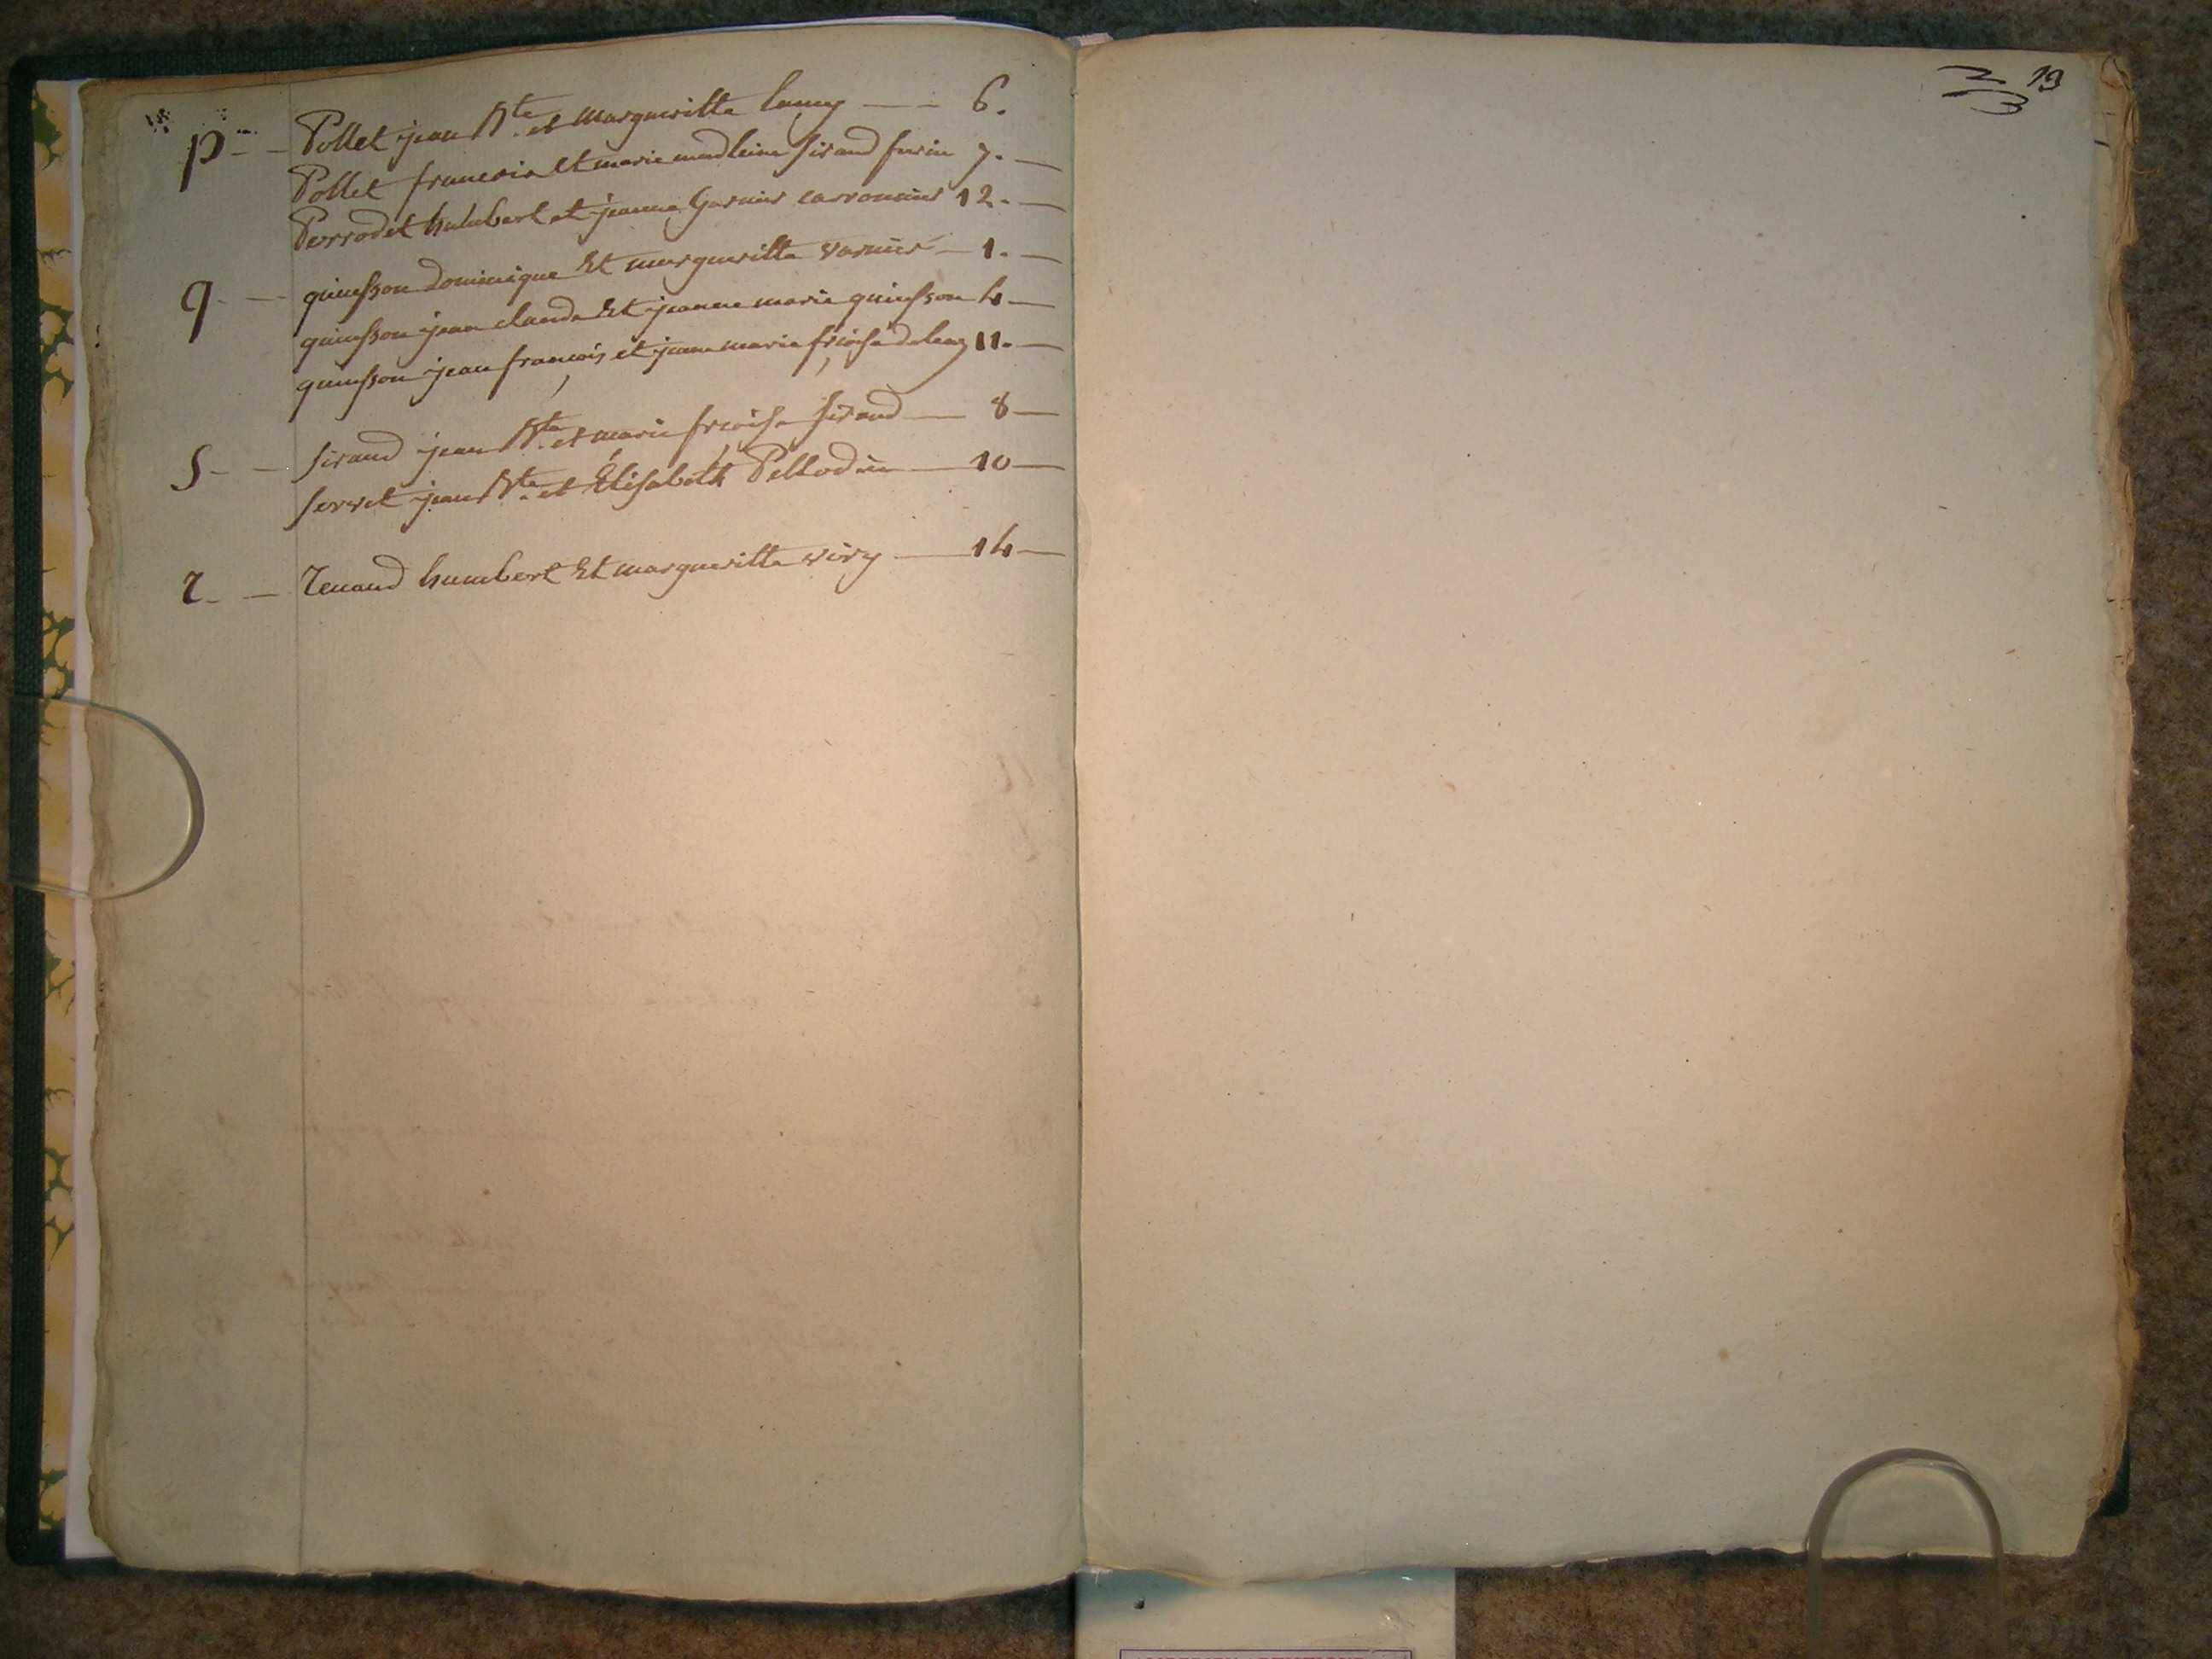 p -- Pollet jean Bte et Margueritte lamy -- 6.
Pollet francois et marie madleine sirand furin 7.
Perrodet humbert et jeanne Garnier carronnier 12.
q -- quinsson dominique Et margueritte varnier 1.
quinsson jean claude Et jeanne marie quinsson 4
quinsson jean françois et jeanne marie frçoise 11.
S -- sirand jean Bte et marie frçoise sirand 8
servet jean Bte et Élisabeth Pellodin 10
r -- renaud humbert Et margueritte viry 14
13